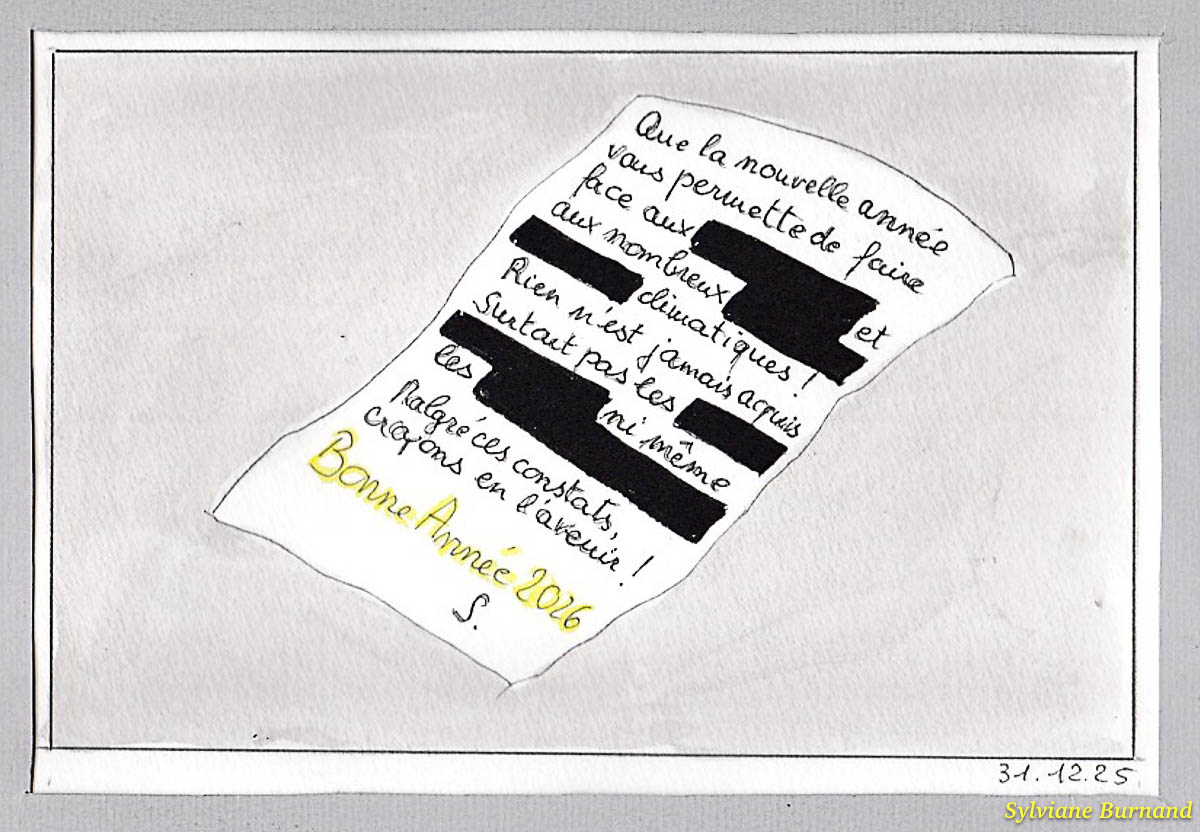 Que la nouvelle année
vous permette de faire
face aux et
aux nombreux
climatiques !
Rien n'est jamais acquis
Surtout pas les
ni même
les
Malgré ces constats,
croyons en l'avenir !
Bonne Année 2026
S.
31.12.25.
Sylviane Burnand